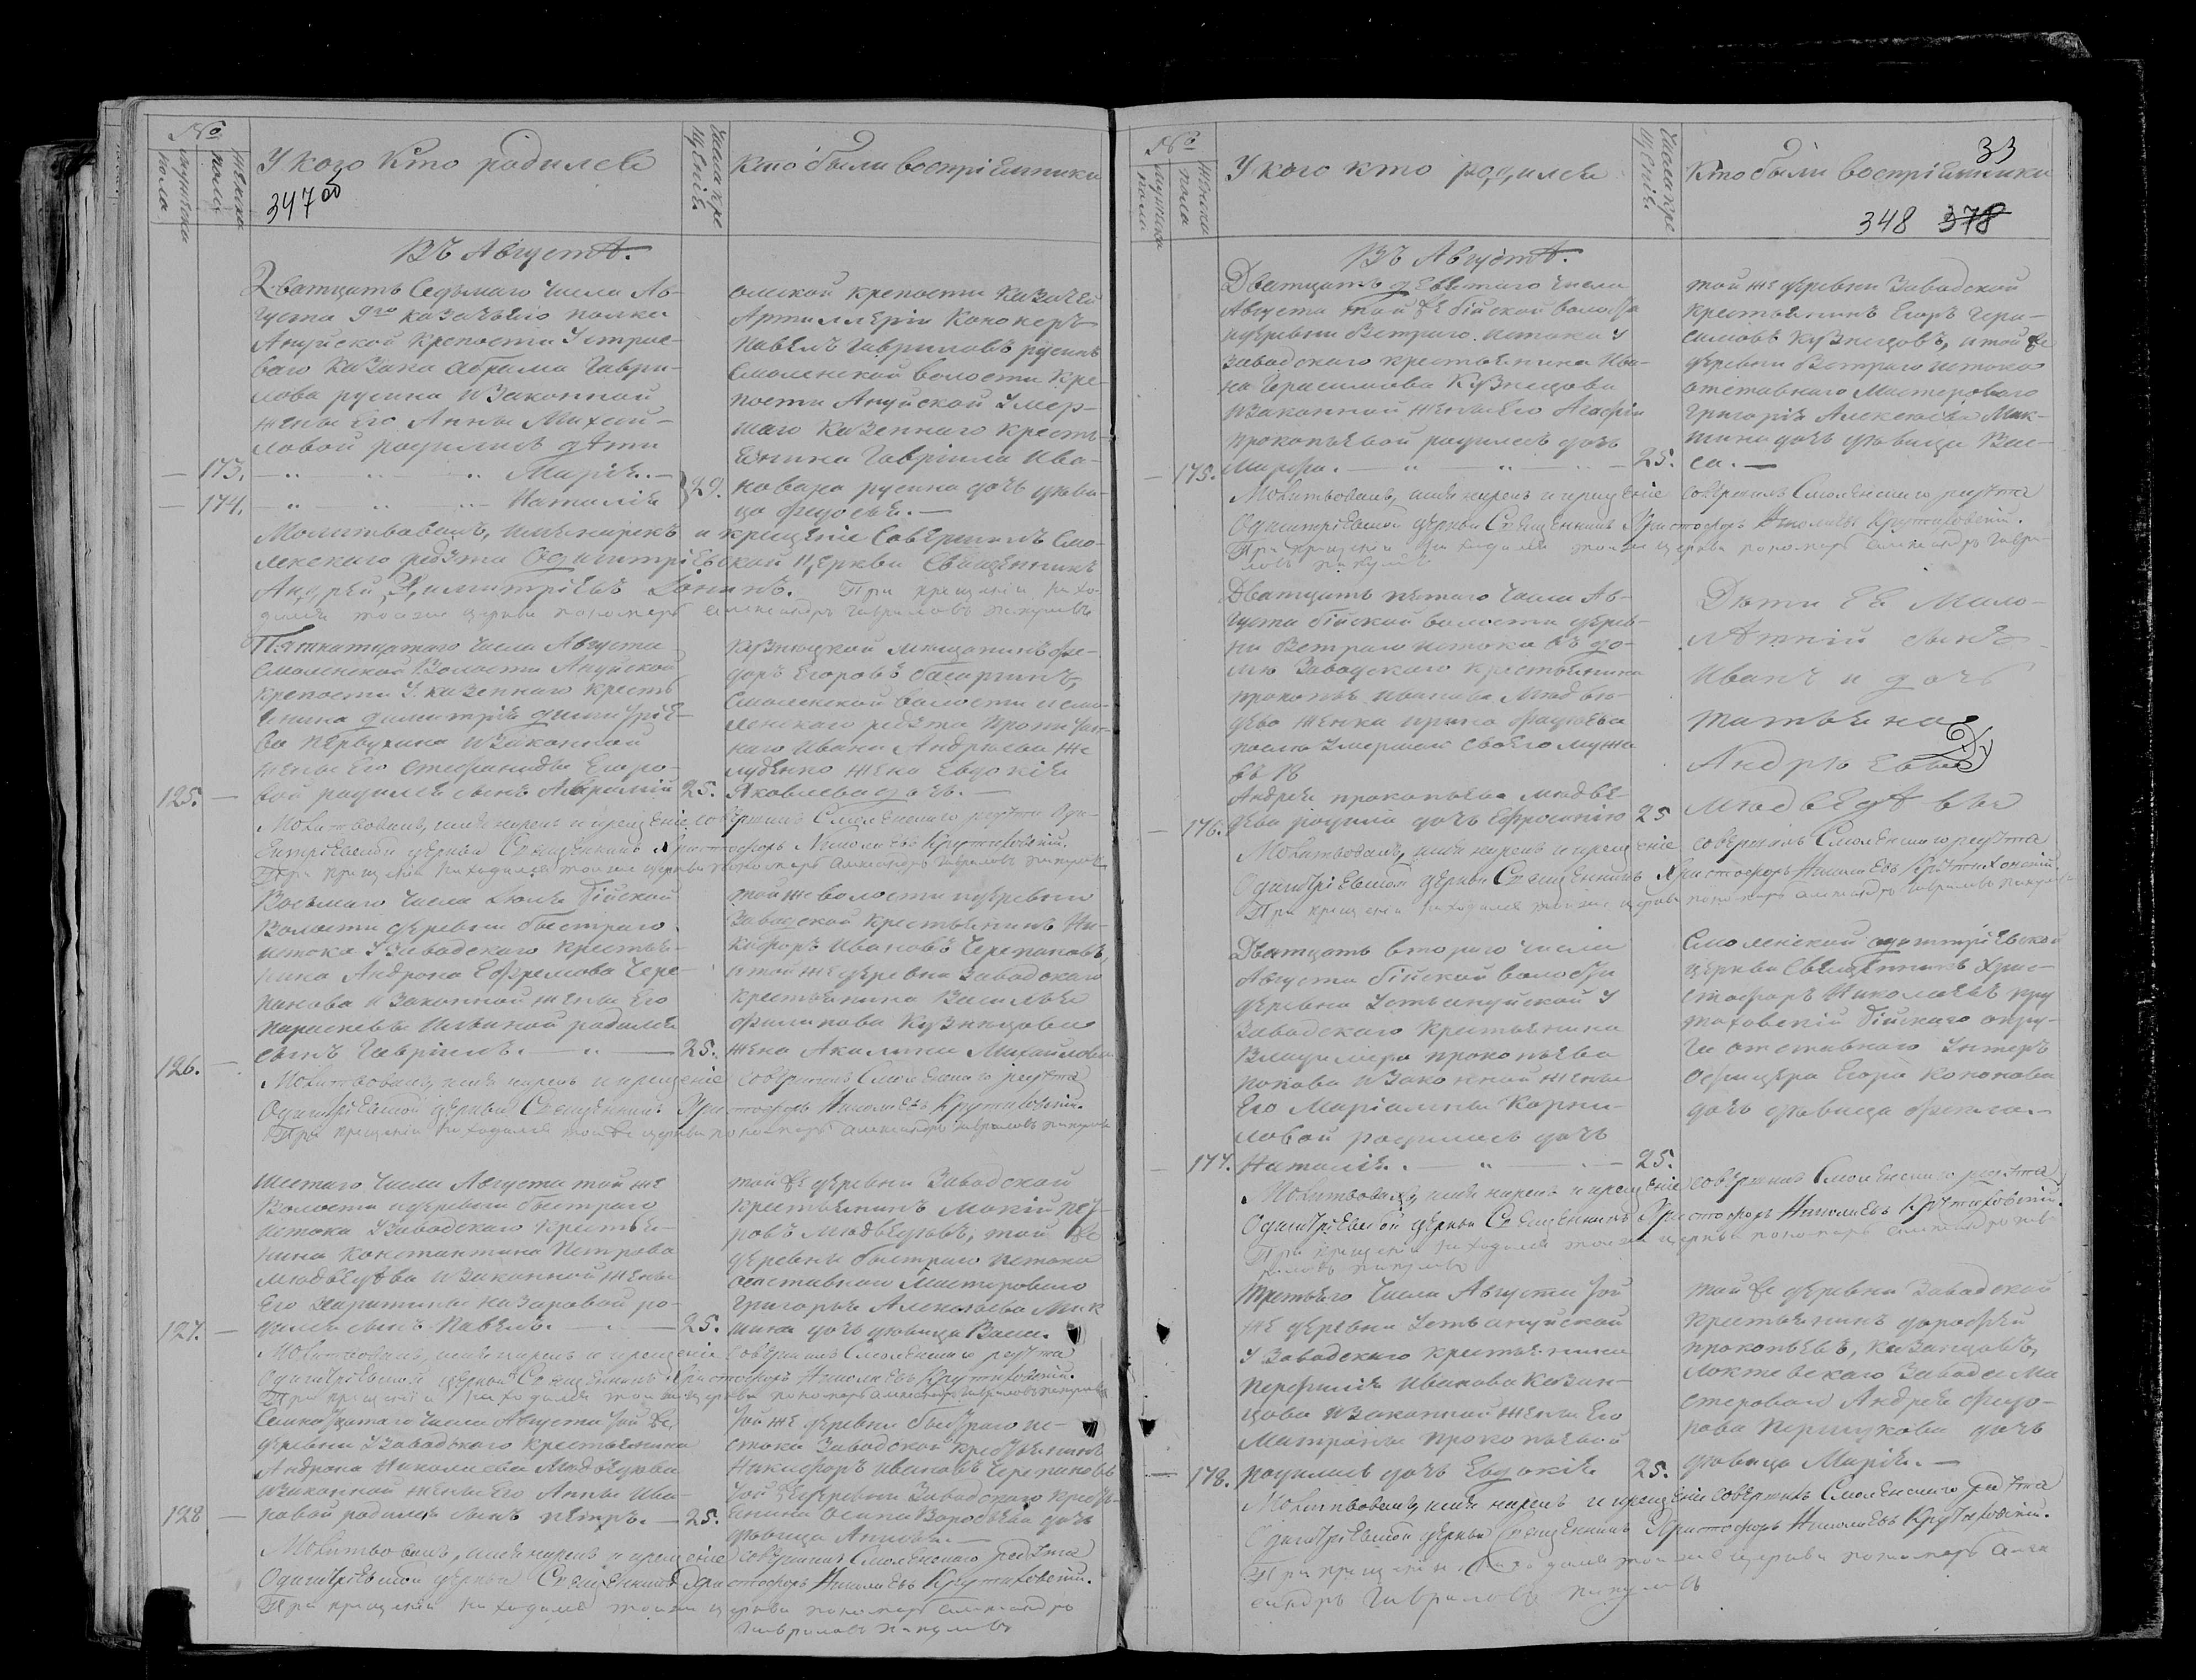 №
мужеска пола
женска пола
У кого кто родился
Числа крещенiя
Кто были воспрiемники
347 об
Въ Августѣ.
Дватцать Седьмаго числа Ав-
густа 9го казачьяго полка
Ануйской крепости У отряд-
ваго казака Абрама Гаври-
лова русина изаконной
жены Его Анны Михай-
ловой родились дѣти
173. Марiя.
174. Наталiя
29.
омской крепости казачей
Артиллерiи Канонеръ
Павелъ Гавриловъ русинъ
Смоленской волости кре-
пости Ануйской умер-
шаго казеннаго кресть-
янина Гаврила Ива-
нова русина дочь дѣви-
ца федосья.
Молитвовалъ, имя нарекъ и крещенiе Совершилъ Смо-
ленскаго редута Одигитрiевской Церкви Священникъ
Андрей Димитрiевъ При крещенiи нахо-
дился тойже церкви пономарь Александръ Гавриловъ
Пятнатцатаго числа Августа
Смоленской Волости Ануйской
крепости У казеннаго кресть
янина димитрiя димитрiе-
ва Первухина изаконной
жены Его Стефаниды Егоро-
125. вой родился сынъ Аврамiй 25.
Кузнецкой мещанинъ фе-
доръ Егоровъ
Смоленской волости исмо-
ленскаго редута
Ивана Андреева
жена Евдокiя
Яковлева дочь.
Молитвовалъ, имя нарекъ и крещенiе совершилъ Смоленскаго редута Оди-
гитрiевской церкви Священникъ Христофоръ Николаевъ Крутиховскiй.
При крещенiи находился тойже церкви пономарь Александръ Гавриловъ
Восьмаго числа Июля бiйской
Волости деревни быстраго
истока У Завадскаго крестья-
нина Андрона Ефремова Чере-
панова и законной жены Его
парасковьи Ильиной родился
126. сынъ Гаврiилъ. 25.
тойже волости идеревни
Завадской крестьянинъ Ни-
кифоръ Ивановъ Черепановъ,
итойже деревни Завадскаго
крестьянина Василья
филипова Кузнецова
жена Акилина Михайлова
Молитвовалъ, имя нарекъ и крещенiе совершилъ Смоленскаго редута
Одигитрiевской церкви Священникъ Христофоръ Николаевъ Крутиховскiй.
При крещенiи находился тойже церкви пономарь Александръ Гавриловъ
Шестаго числа Августа той же
Волости идеревни быстраго
истока У Завадскаго крестья-
нина Константина Петрова
Медвѣдѣва изаконной жены
Его харитины Назаровой ро-
127. дился сынъ Павелъ. 25.
той же деревни Завадской
крестьянинъ Мокiй пет-
ровъ Медведевъ, той же
деревни быстраго истока
отставнаго Мастероваго
Григорья Алексеева Мик
шина дочь девица Васса.
Молитвовалъ, имя нарекъ и крещенiе совершилъ Смоленскаго редута
Одигитрiевской церкви Священникъ Христофоръ Николаевъ Крутиховскiй.
При крещенiи находился тойже церкви пономарь Александръ Гавриловъ
Семнатцатаго числа Августа той же
деревни У Завадскаго крестьянина
Андрона Николаева Медведева
изаконной жены Его Анны Ива-
128 новой родился сынъ петръ. 25.
той же деревни быстраго ис-
стока Завадской крестьянинъ
Никифоръ Ивановъ Черепановъ
той же деревни Завадскаго кресть-
янина Осипа Воробьева дочь
девица
Молитвовалъ, имя нарекъ и крещенiе совершилъ Смоленскаго редута
Одигитрiевской церкви Священникъ Христофоръ Николаевъ Крутиховскiй.
При крещенiи находился тойже церкви пономарь Александръ
Гавриловъ
№
мужеска пола
женска пола
У кого кто родился
Числа крещенiя
Кто были воспрiемники
33
348 378
Въ Августѣ.
Дватцать девятаго числа
Августа той же бiйской волости
идеревни Встраго истока У
завадскаго крестьянина Ива-
на Герасимова Кузнецова
изаконной жены Его Агафiи
прокопьевой родилась дочь
175. Марфа. 25.
той же деревни Завадской
крестьянинъ Егоръ Гера-
симовъ Кузнецовъ, итой же
деревни Встраго истока
отставнаго Мастероваго
Григорiя Алексеева Мик-
шина дочь девица Вас-
са.
Молитвовалъ, имя нарекъ и крещенiе совершилъ Смоленскаго редута
Одигитрiевской церкви Священникъ Христофоръ Николаевъ Крутиховскiй.
При крещенiи находился тойже церкви пономарь Александръ Гаври-
ловъ
Дватцать пятаго числа Ав-
густа бiйской волости дерев-
ни Встраго истока въ до-
мѣ Завадскаго крестьянина
прокопья иванова Медве-
дева женка ирина фадеева
после умершаго своего мужа
Андрея прокопьева медве-
176. дева родила дочь Ефросинiю 25
Дѣти ея Мало-
лѣтнiй сынъ
Иванъ и дочь
татьяна
Андреевы
Медведѣвы
Молитвовалъ, имя нарекъ и крещенiе совершилъ Смоленскаго редута
Одигитрiевской церкви Священникъ Христофоръ Николаевъ Крутиховскiй.
При крещенiи находился тойже церкви пономарь Александръ Гавриловъ
Дватцать втораго числа
Августа бiйской волости
деревни Устьануйской У
Завадскаго крестьянина
Владимера прокопьева
попова изаконной жены
Его Марiамны Корни-
ловой родилась дочь
177. Наталiя. 25.
Смоленской одигитрiевской
церкви Священникъ Хрис-
стофоръ Николаевъ кру
тиховскiй бiйскаго окру-
га отставнаго Унтеръ
Офицера Егора Кононова
дочь девица фекла.
Молитвовалъ, имя нарекъ и крещенiе совершилъ Смоленскаго редута
Одигитрiевской церкви Священникъ Христофоръ Николаевъ Крутиховскiй.
При крещенiи находился тойже церкви пономарь Александръ Гав-
риловъ
Третьяго числа Августа той
же деревни Устьануйской
У Завадскаго крестьянина
Перфилiя Иванова Казан-
цова изаконной жены Его
Матроны прокопьевой
178. родилась дочь Евдокiя 25.
той же деревни Завадской
крестьянинъ дорофей
прокопьевъ, Казанцовъ,
локтевскаго Завода Ма
стероваго Андрея федо-
рова Першукова дочь
девица Марiя.
Молитвовалъ, имя нарекъ и крещенiе совершилъ Смоленскаго редута
Одигитрiевской церкви Священникъ Христофоръ Николаевъ Крутиховскiй.
При крещенiи находился тойже церкви пономарь Алек
сандръ Гавриловъ